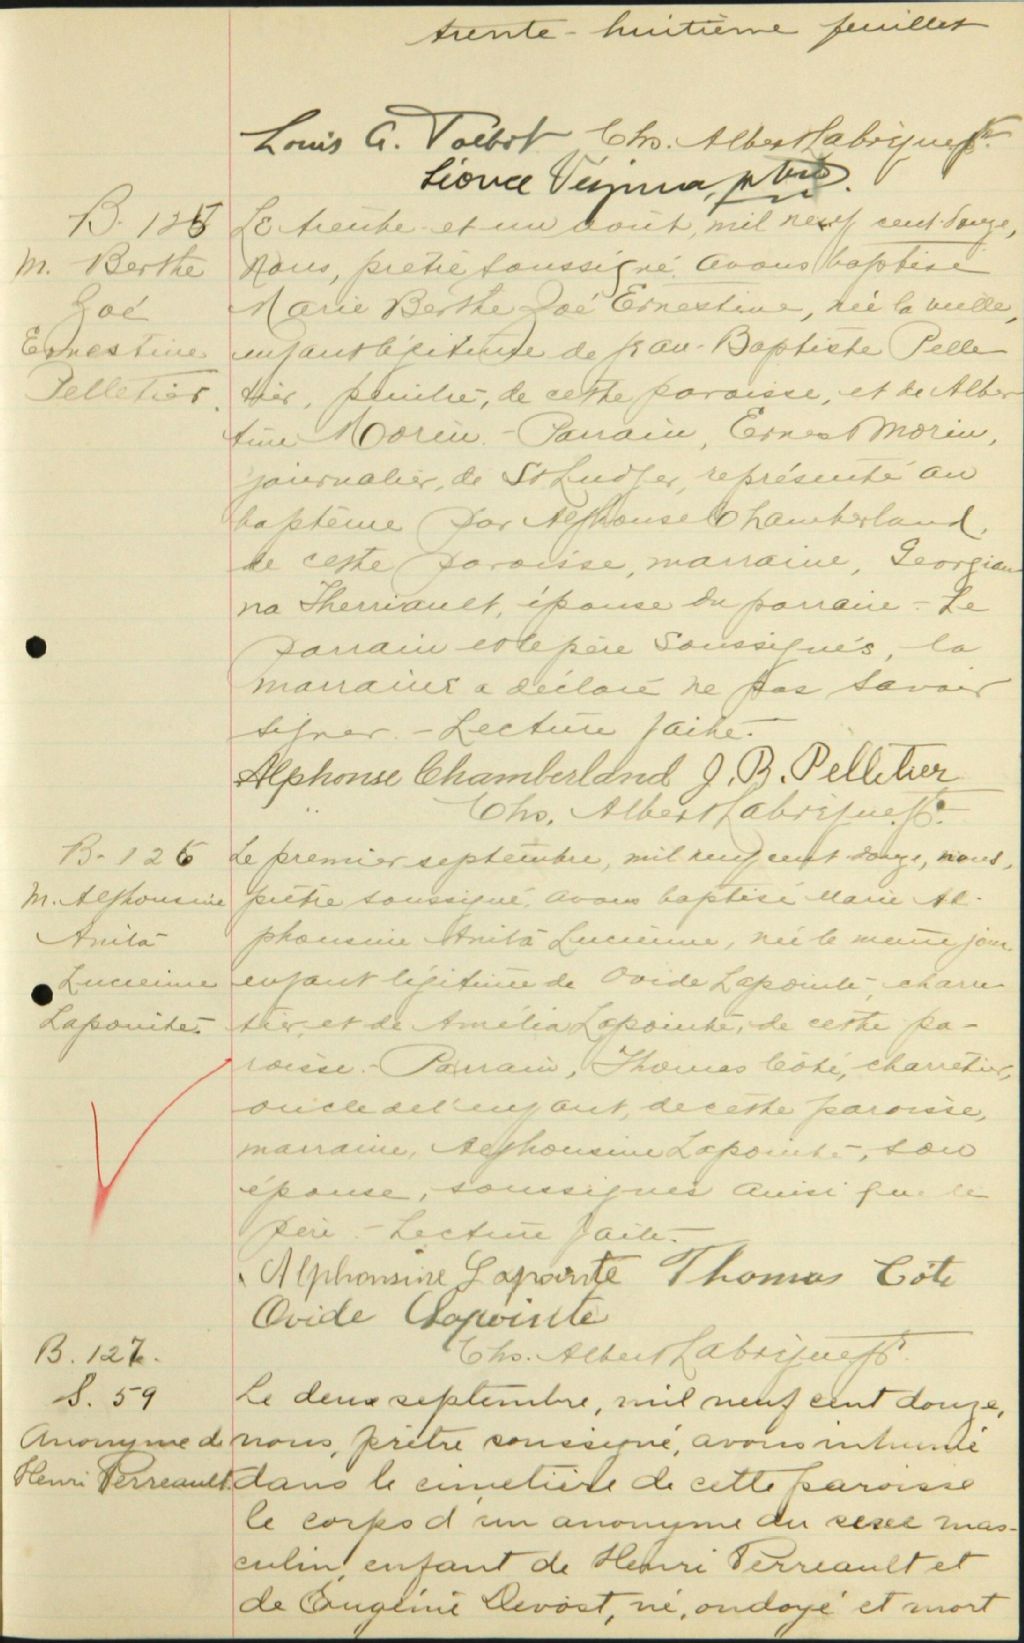 trente-huitième feuillet
Louis G. Talbot Chs. Albert Labrique Ptr.
Léonce Vézina, ptre.
B. 125
M. Berthe
Zoé
Ernestine
Pelletier.
Le trente-et-un août, mil neuf cent douze,
Nous, prêtre soussigné, avons baptisé
Marie Berthe Zoé Ernestine, née la veille,
enfant légitime de Jean-Baptiste Pelle-
tier, peintre, de cette paroisse, et de Alber-
tine Morin. - Parrain, Ernest Morin,
journalier, de St Ludger, représenté au
baptême par Alphonse Chamberland,
de cette paroisse, marraine, Georgian-
na Therriault, épouse du parrain - Le
parrain et le père soussignés, la
marraine a déclaré ne pas savoir
signer. - Lecture faite. -
Alphonse Chamberland J. B. Pelletier
Chs. Albert Labrique Ptr.
B. 126
M. Alphonsine
Anita
Lucienne
Lapointe
Le premier septembre, mil neuf cent douze, nous,
prêtre soussigné, avons baptisé Marie Al-
phonsine Anita Lucienne, née le même jour
enfant légitime de Ovide Lapointe, charre-
tier, et de Amélia Lapointe, de cette pa-
roisse. - Parrain, Thomas Côté, charretier,
oncle de l'enfant, de cette paroisse,
marraine, Alphonsine Lapointe, son
épouse, soussignés ainsi que le
père - Lecture faite. -
Alphonsine Lapointe Thomas Côté
Ovide Lapointe
Chs. Albert Labrique Ptr.
B. 127.
S. 59
Anonyme de
Henri Perreault
Le deux septembre, mil neuf cent douze,
nous, prêtre soussigné, avons inhumé
dans le cimetière de cette paroisse
le corps d'un anonyme du sexe mas-
culin, enfant de Henri Perreault et
de Eugénie Devost, né, ondoyé et mort